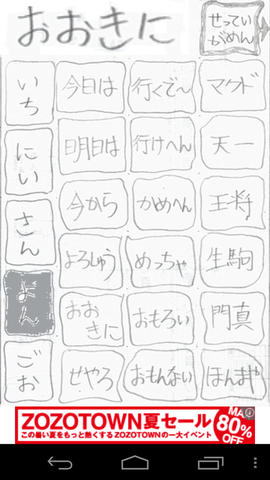 おおきに
せってい
がめん
いち
にい
さん
よん
ごお
今日は
行くで〜
マクド
明日は
行けへん
天一
今から
かめへん
王将
よろしゅう
めっちゃ
生駒
おお
きに
おもろい
門真
せやろ
おもんない
ほんまや
ZOZOTOWN夏セール
この暑い夏をもっと熱くするZOZOTOWNの一大イベント
MA
80%
OFF